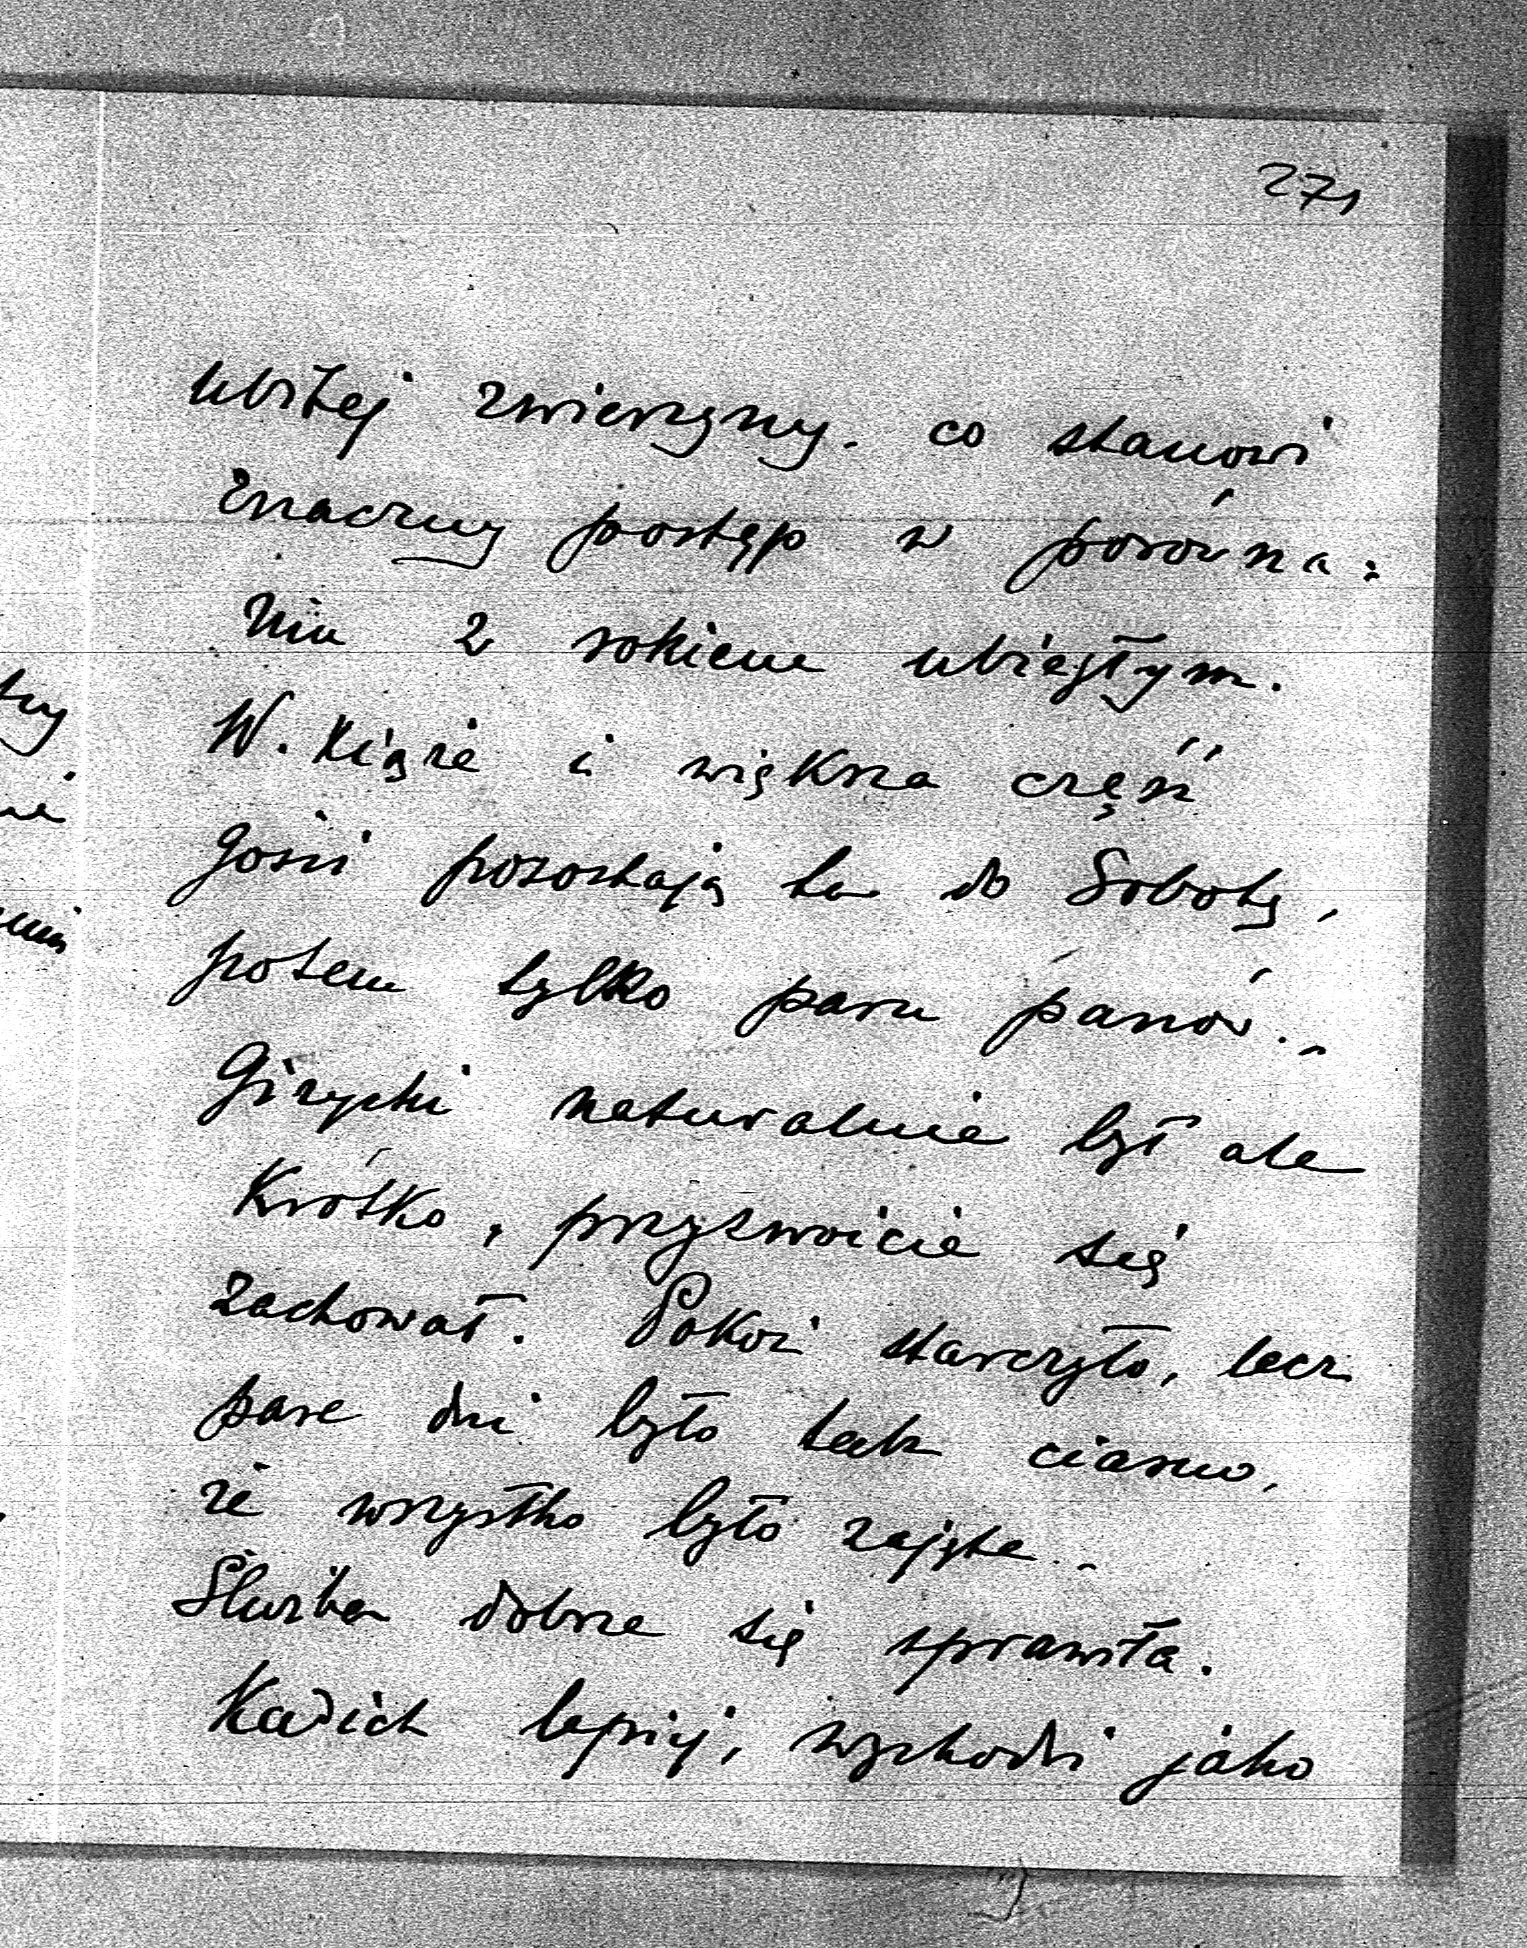 271
ubitej zwierzyny. co stanowi
znaczny postęp w porówna:
niu z rokiem ubiegłym.
W. Książe i większa część
gości pozostają tu do Soboty,
potem tylko paru panów.-
Giżycki naturalnie był ale
krótko, przyzwoicie się
zachował. Pokoi starczyło, lecz
pare dni było tak ciasno,
że wszystko było zajęte.-
Służba dobrze się sprawiła.
lepiej, wychodzi jako